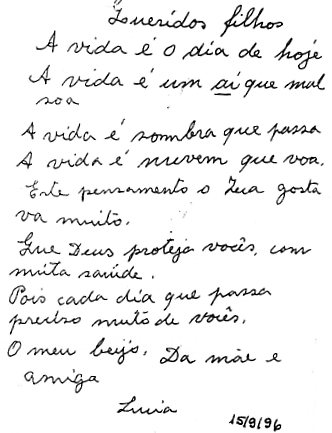 Queridos filhos
A vida é o dia de hoje
A vida é um ai que mal
soa
A vida é sombra que passa
A vida é nuvem que voa.
Este pensamento o Zeca gosta
va muito.
Que Deus proteja vocês, com
muita saúde.
Pois cada dia que passa
preciso muito de vocês.
O meu beijo. Da mãe e
amiga
Lucia
15/9/96